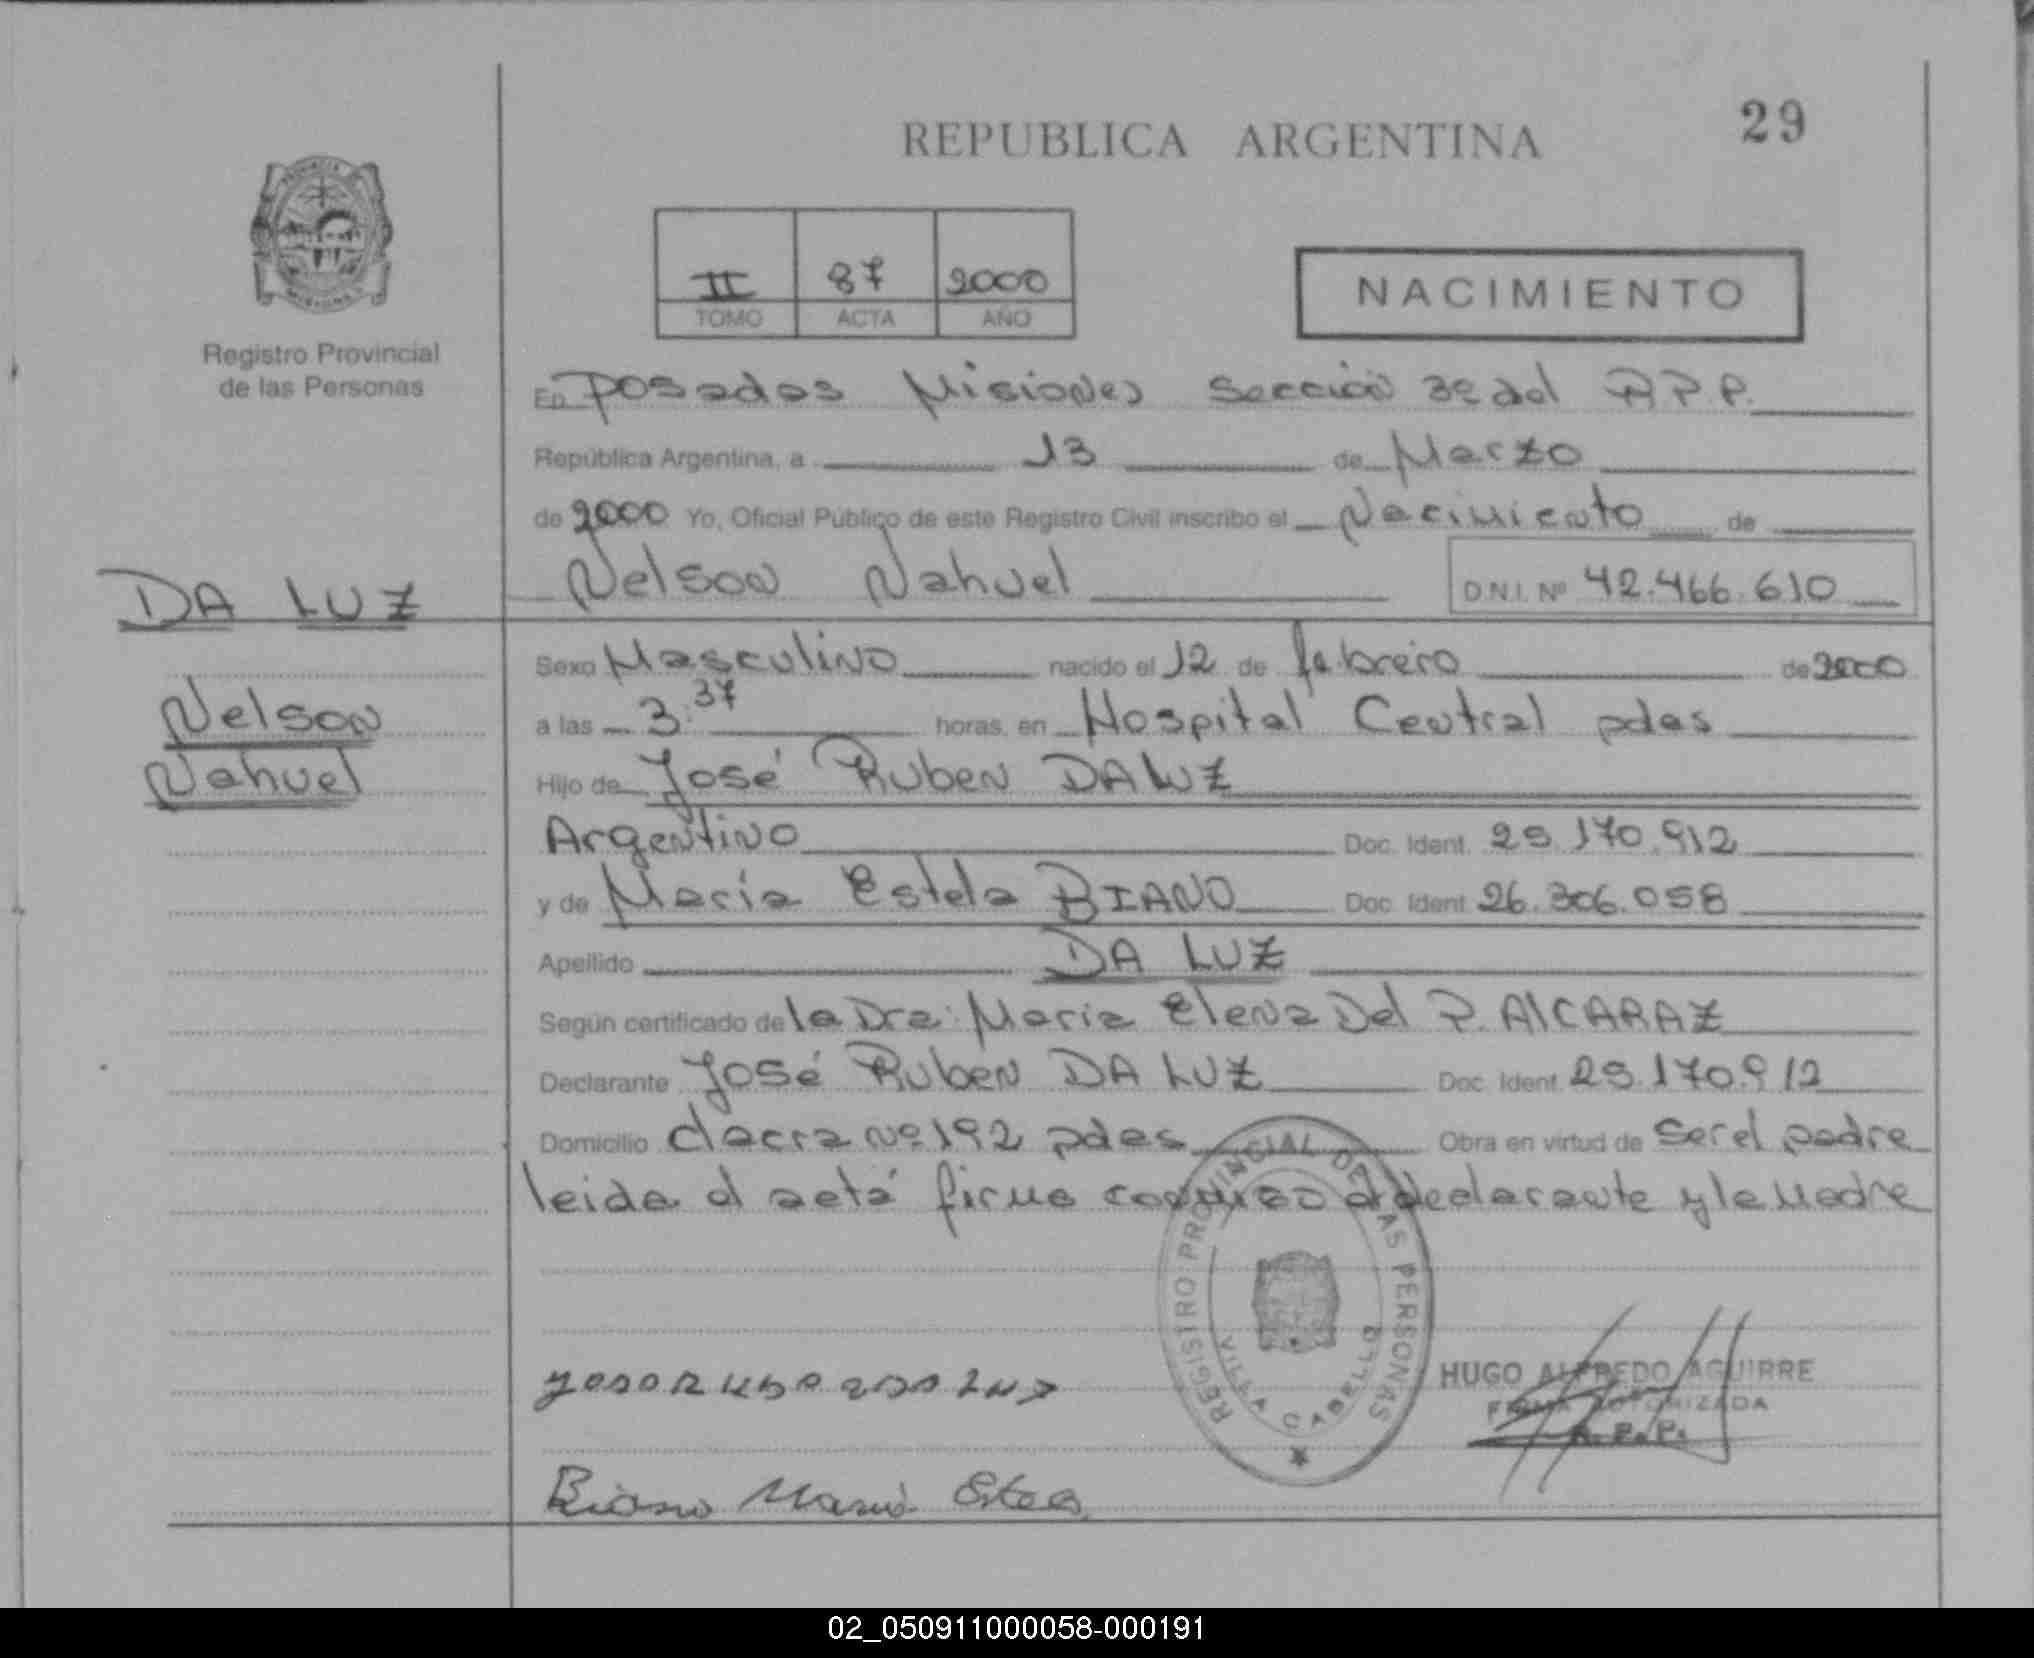 29
REPUBLICA ARGENTINA
II 87 2000
TOMO ACTA AÑO
NACIMIENTO
Registro Provincial
de las Personas
En Posadas Misiones Sección 3ª del R.P.P.
República Argentina, a 13 de Marzo
de 2000 Yo, Oficial Público de este Registro Civil inscribo el Nacimiento de
Nelson Nahuel D.N.I. Nº 42.466.610
DA LUZ
Nelson
Nahuel
Sexo Masculino nacido el 12 de febrero de 2000
a las 3:37 horas, en Hospital Central pdas
Hijo de José Ruben DA LUZ
Argentino Doc. Ident. 25.170.912
y de María Estela BIANO Doc. Ident. 26.306.058
Apellido DA LUZ
Según certificado de la Dra: Maria Elena Del P. AlCARAZ
Declarante José Ruben DA LUZ Doc. Ident. 25.170.912
Domicilio chacra nº 192 pdas Obra en virtud de ser el padre
leida el acta firma conmigo el declarante y la Madre
REGISTRO PROVINCIAL DE LAS PERSONAS
VILLA CABELLO
HUGO ALFREDO AGUIRRE
FIRMA AUTORIZADA
R.P.P.
Biano Maria Estela
02_050911000058-000191